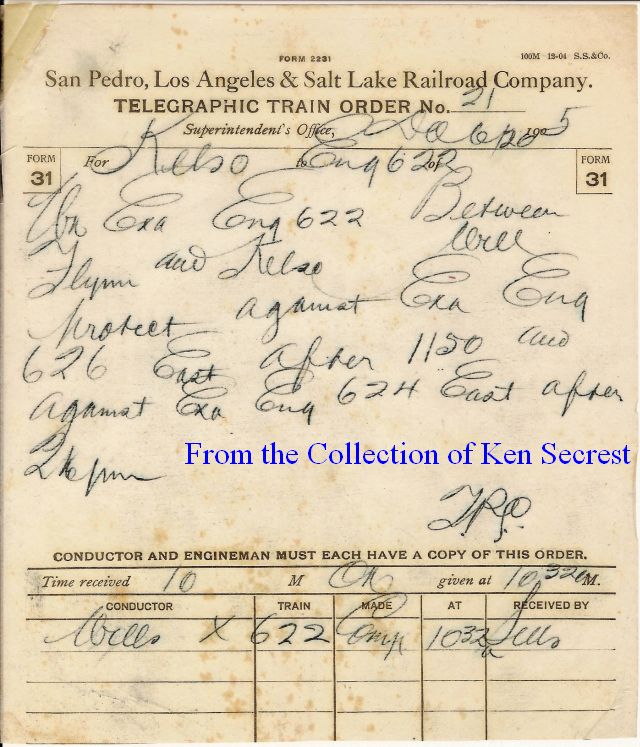 FORM 2231
100M 12-04 S.S.&Co.
San Pedro, Los Angeles & Salt Lake Railroad Company.
TELEGRAPHIC TRAIN ORDER No. 21
Superintendent's Office, 1905
FORM 31
For Kelso to Eng 622 of
FORM 31
Wk Exa Eng 622 Between
Flynn and Kelso Will
Protect against Exa Eng
626 East after 1150 and
against Exa Eng 624 East after
From the Collection of Ken Secrest
CONDUCTOR AND ENGINEMAN MUST EACH HAVE A COPY OF THIS ORDER.
Time received 10 M OK given at 1032a M.
CONDUCTOR TRAIN MADE AT RECEIVED BY
Wells X 622 Comp 1032a